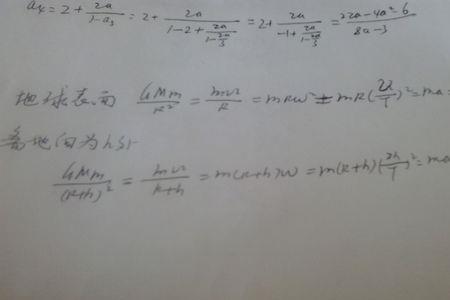 a₄ = 2 + \frac{2a}{1-a₃} = 2 + \frac{2a}{1-2+\frac{2a}{1-\frac{2a}{3}}} = 2 + \frac{2a}{-1+\frac{2a}{1-\frac{2a}{3}}} = \frac{22a-4a²-6}{8a-3}
地球表面 \frac{GMm}{R²} = \frac{mv²}{R} = mRω² = mR(\frac{2π}{T})² = ma =
离地面为h时
\frac{GMm}{(R+h)²} = \frac{mv²}{R+h} = m(R+h)ω = m(R+h)(\frac{2π}{T})² = ma